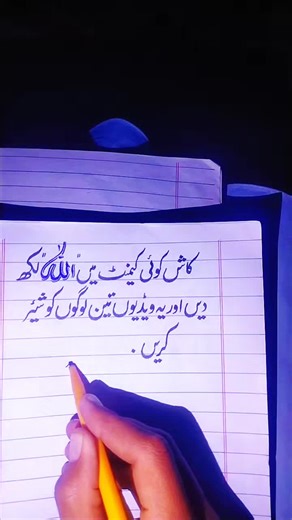 کاش کوئی کمینٹ میں "اللہ" لکھ
دیں اور یہ ویڈیوں تین لوگوں کو شیئر
کریں .